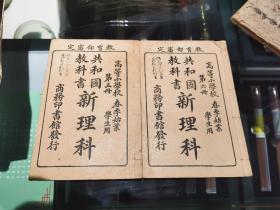 教育部審定
高等小學校 春季始業
第五冊 學生用
共和國
教科書
新理科
商務印書館發行
教育部審定
高等小學校 春季始業
第六冊 學生用
共和國
教科書
新理科
商務印書館發行